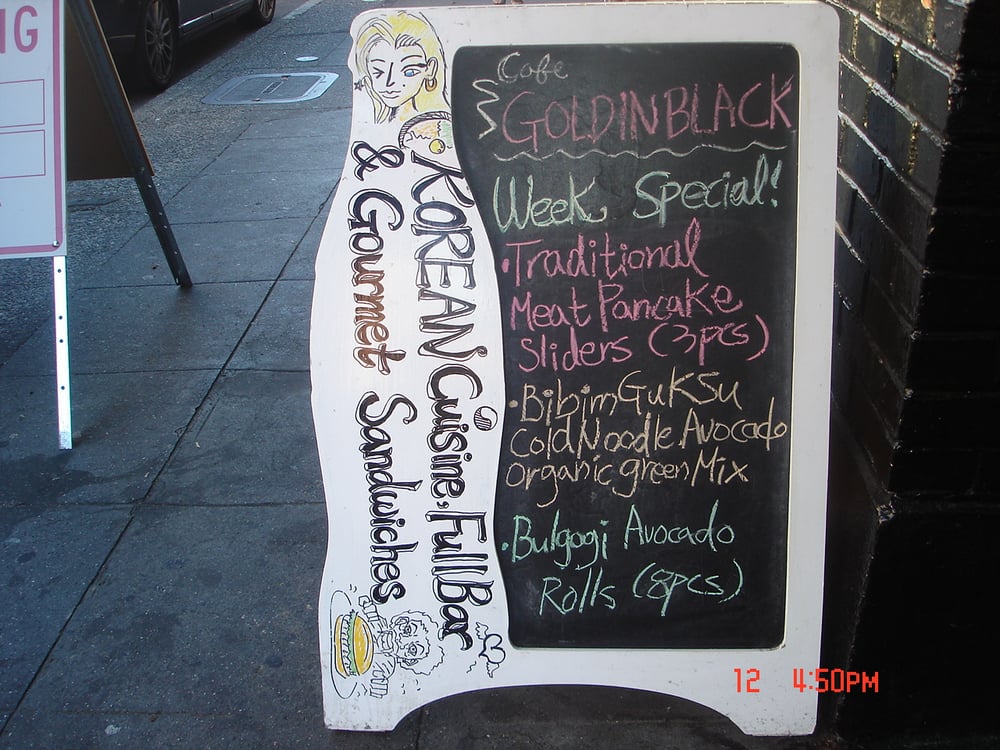 NG
Cafe
GOLDINBLACK
Week Special!
·Traditional
Meat Pancake
Sliders (3pcs)
·BibimGuksu
Cold Noodle Avocado
organic green Mix
·Bulgogi Avocado
Rolls (8pcs)
KOREAN Cuisine, Full Bar
& Gourmet Sandwiches
12 4:50PM